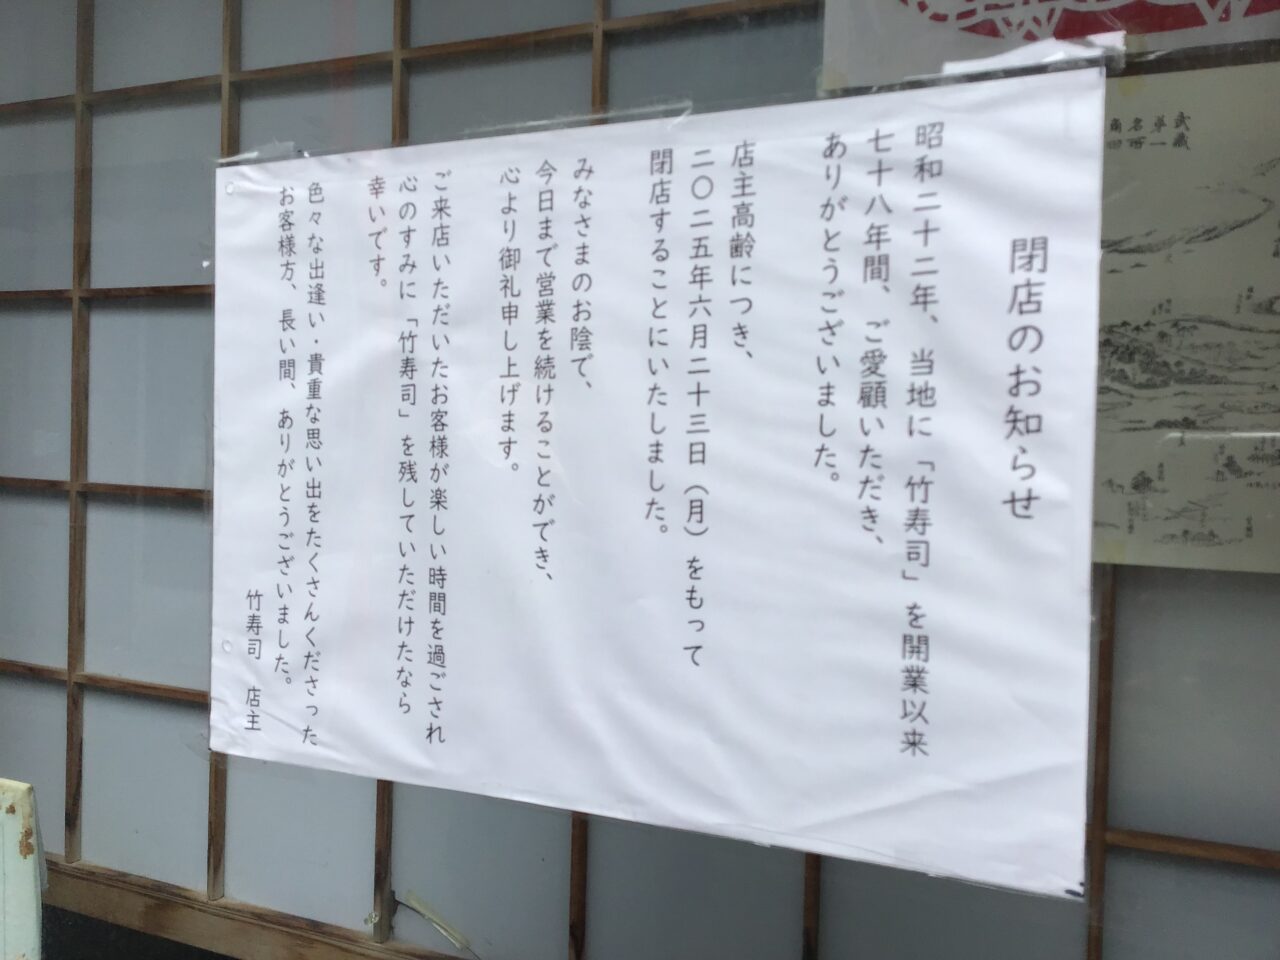 閉店のお知らせ
昭和二十二年、当地に「竹寿司」を開業以来
七十八年間、ご愛顧いただき、
ありがとうございました。
店主高齢につき、
二〇二五年六月二十三日（月）をもって
閉店することにいたしました。
みなさまのお陰で、
今日まで営業を続けることができ、
心より御礼申し上げます。
ご来店いただいたお客様が楽しい時間を過ごされ
心のすみに「竹寿司」を残していただけたなら
幸いです。
色々な出逢い・貴重な思い出をたくさんくださった
お客様方、長い間、ありがとうございました。
竹寿司　店主